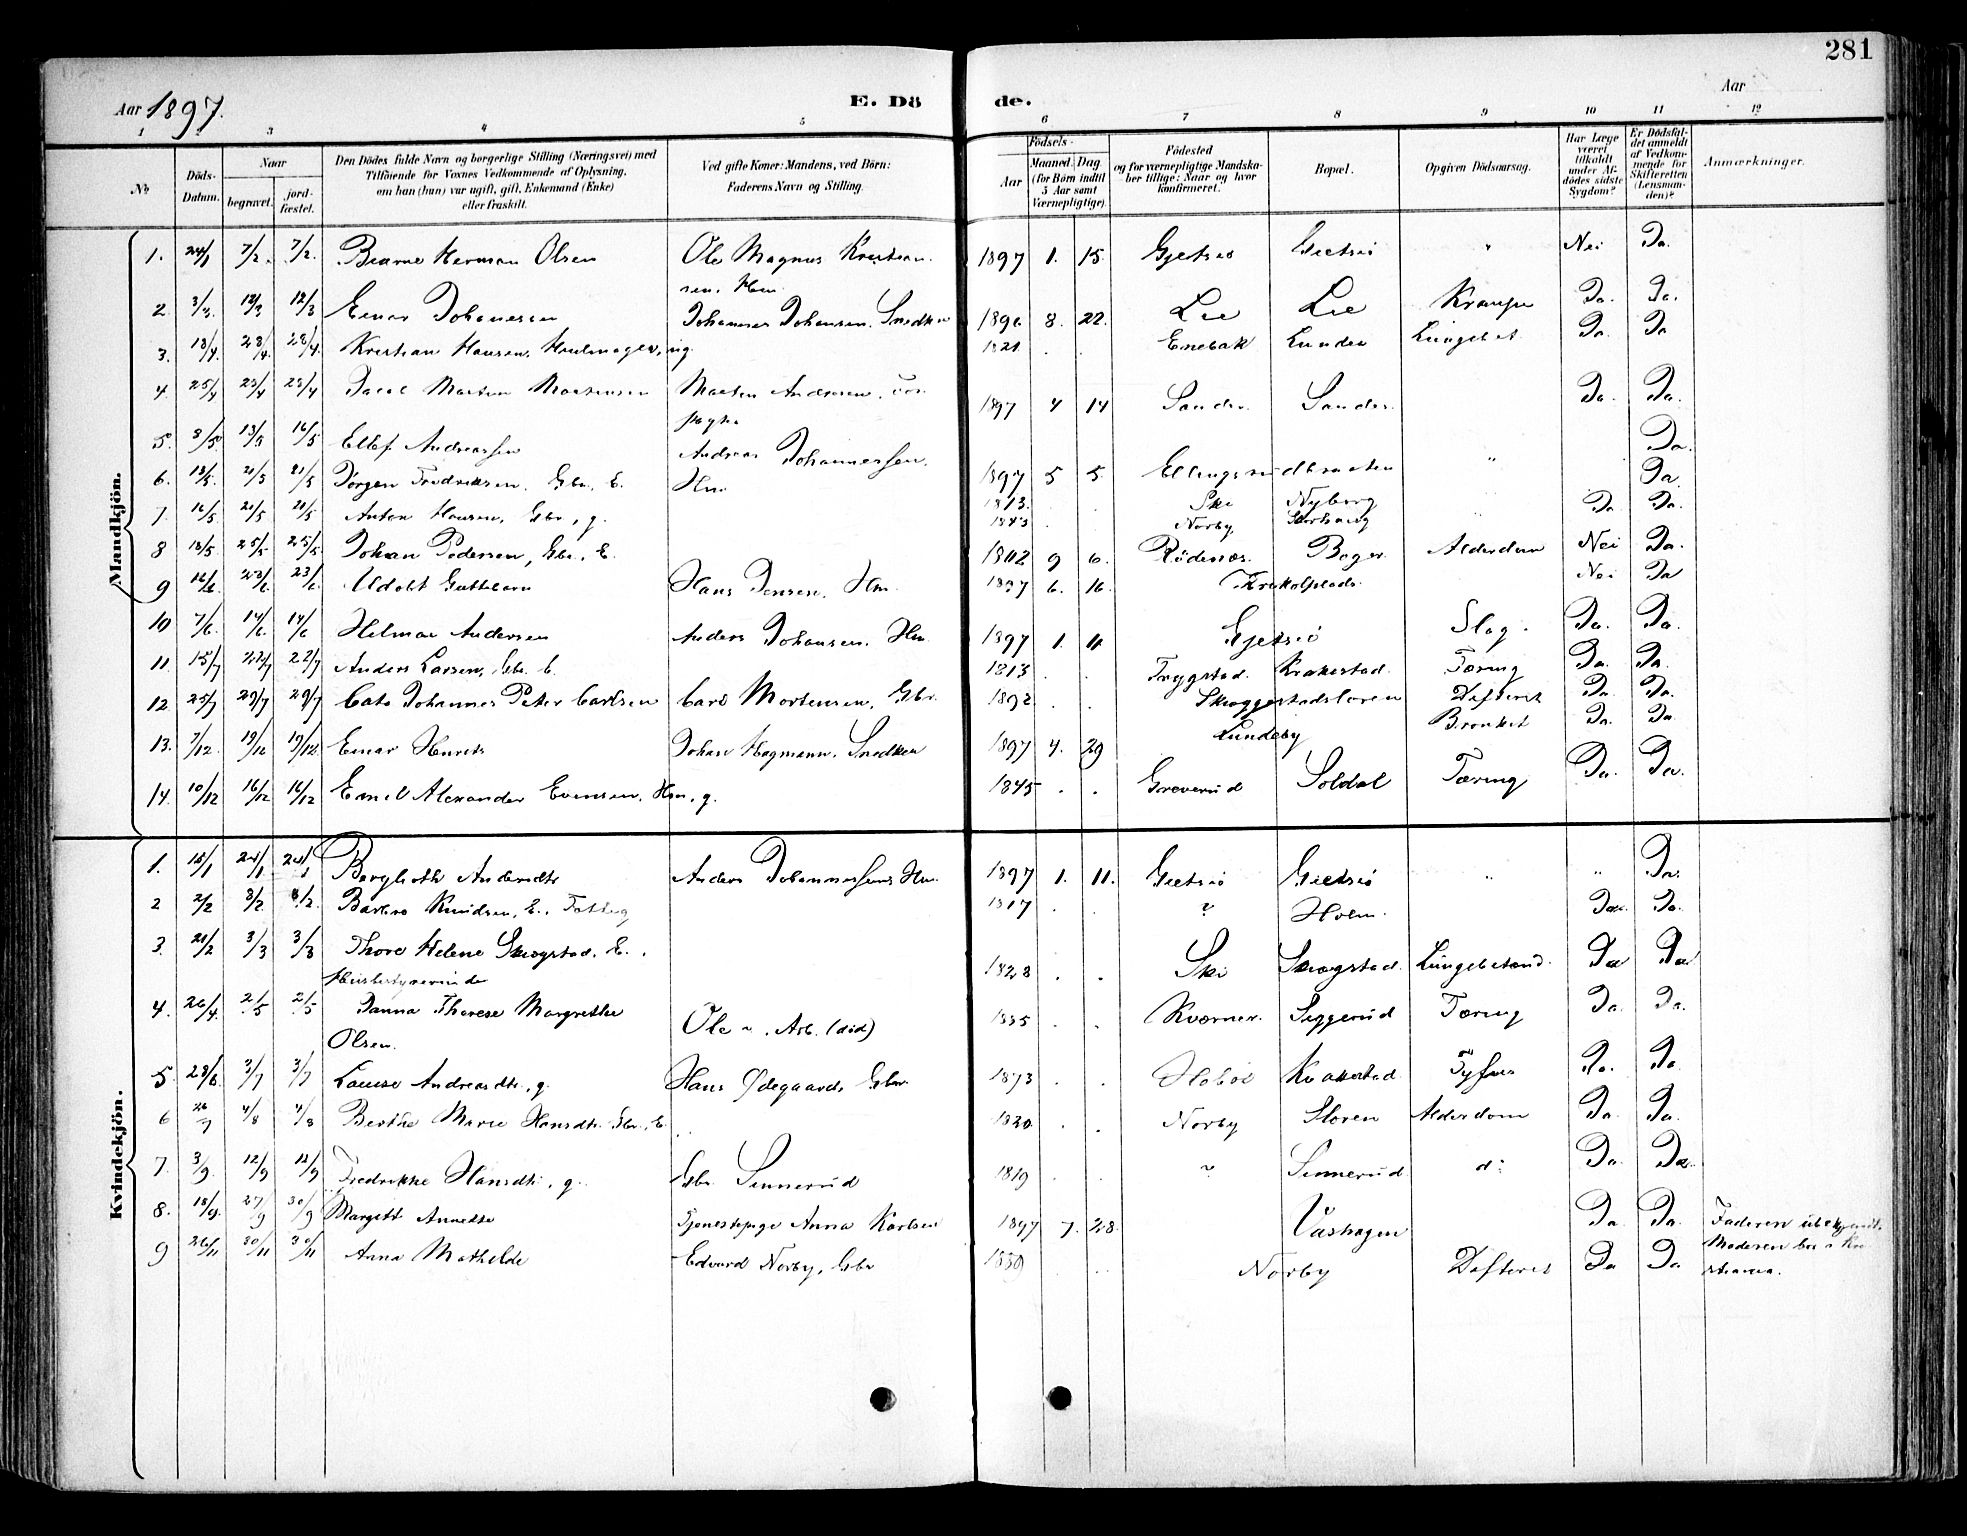 281
Aar 1897.
E. Döde.
Aar
1 2 3 4 5 6 7 8 9 10 11 12
No
Döds-Datum.
Naar
begravet.
jordfæstet.
Den Dödes fulde Navn og borgerlige Stilling (Næringsvei) med
Tilföiende for Voxnes Vedkommende af Oplysning,
om han (hun) var ugift, gift, Enkemand (Enke)
eller fraskilt.
Ved gifte Koner: Mandens, ved Börn:
Faderens Navn og Stilling.
Födsels-
Aar
Maaned. Dag
(for Börn indtil
5 Aar samt
Værnepligtige).
Födested
og for værnepligtige Mandskaber tillige: Naar og hvor
konfirmeret.
Bopæl.
Opgiven Dödsaarsag.
Har Læge
været
tilkaldt
under Afdödes sidste
Sygdom?
Er Dödsfaldet anmeldt
af Vedkommende for
Skifteretten
(Lensmanden)?
Anmærkninger.
Mandkjön.
1. 24/1 7/2. 7/2. Bjarne Herman Olsen Ole Magnus Kristiansen. Hm. 1897 1. 15. Gjetsiö Gjetsiö " Nei Ja.
2. 3/3 12/3 12/3 Einar Johansen Johannes Johansen. Snedker 1896 8. 22. Lie Lie Krampe Ja. Ja.
3. 18/4 28/4. 28/4. Kristian Hansen, Hjulmager, ug. 1821 . . Enebak Lunder Lungebet. Ja. Ja
4. 25/4 23/4 23/4 Jacob Morten Mortensen Morten Andersen, 1897 4 14 Sander. Sander. Ja. Ja.
5. 8/5. 13/5 16/5 Ellef Andreassen Andreas Johannessen. Hm. 1897 5 5. Ellingsrudbraaten " Ja.
6. 13/5. 21/5 21/5 Jörgen Fredriksen. Gbr. E. 1813. . . Ski Nyborg Ja.
7 16/5 21/5 21/5 Anton Hansen, Gbr, g. 1843 . . Norby Ja Ja.
8 18/5. 25/5 25/5. Johan Pedersen, Gbr. E. 1812 9 6. Rödenæs. Boger Alderdom Nei Ja.
9 16/6 23/6. 23/6. Udöbt Guttebarn Hans Jensen. Hm. 1897 6. 16. Nei Ja
10 7/6. 14/6. 14/6 Hilmar Andersen Anders Johansen. Hm 1897 1. 11. Gjetsiö Slag. Ja. Ja.
11. 15/7 22/7 22/7 Anders Larsen, Gbr. E. 1813 . . Trygstad. Krakestad. Tæring Ja. Ja.
12. 25/7 29/7 29/7 Cato Johannes Peter Carlsen Carl Mortensen, Gbr. 1892 . . Skoggestadsloren Difterit Ja. Ja.
13. 7/12. 19/12 19/12. Einar Henrik Johan Hagmann. Snedker 1897 4. 29 Lundeby Bronkit Ja. Ja.
14. 10/12 16/12 16/12 Emil Alexander Evensen, Hm, g. 1845 . . Greverud Soldal Tæring Ja. Ja.
Kvindekjön.
1. 15/1 24/1 24/1 Borghild Andersdtr Anders Johannessen Hm. 1897 1. 11. Gjetsiö Gjetsiö " " Ja.
2 2/2 8/2. 8/2. Barbro Knudsen, E. Fattig 1817 . . " Holm. Ja. Ja.
3. 21/2 3/3 3/3 Thore Helene Skogstad. E. . 1828 . . Ski Skogstad. Lungebetænd. Ja Ja
Husbestyrerinde
4. 26/4. 2/5 2/5 Janna Therese Margrethe Ole ", Arb. (död) 1835 . . Kværner. Siggerud Tæring Ja. Ja.
Olsen.
5. 28/6 3/7 3/7 Louise Andreasdtr, g. Hans Ødegaard, Gbr 1873 . . Hoböl Krakestad Tyfus Ja. Ja.
6 26/7 4/8 4/8 Berthe Marie Hansdtr. Gbr. E. 1820 . . Norby Sloren Alderdom Ja. Ja.
7. 3/9. 12/9 12/9 Fredrikke Hansdtr, g. Gbr. Sinnerud 1819 . . " Sinnerud do Ja. Ja.
8. 18/9. 27/9 30/9 Margitt Annette Tjenestepige Anna Karlsen 1897 7. 28. Vashagen Ja. Ja. Faderen ubekjendt.
Moderen bor i Kristiania.
9 26/11 30/11 30/11 Anna Mathilde Edvard Norby, Gbr 1889 . . Norby Difterit Ja Ja